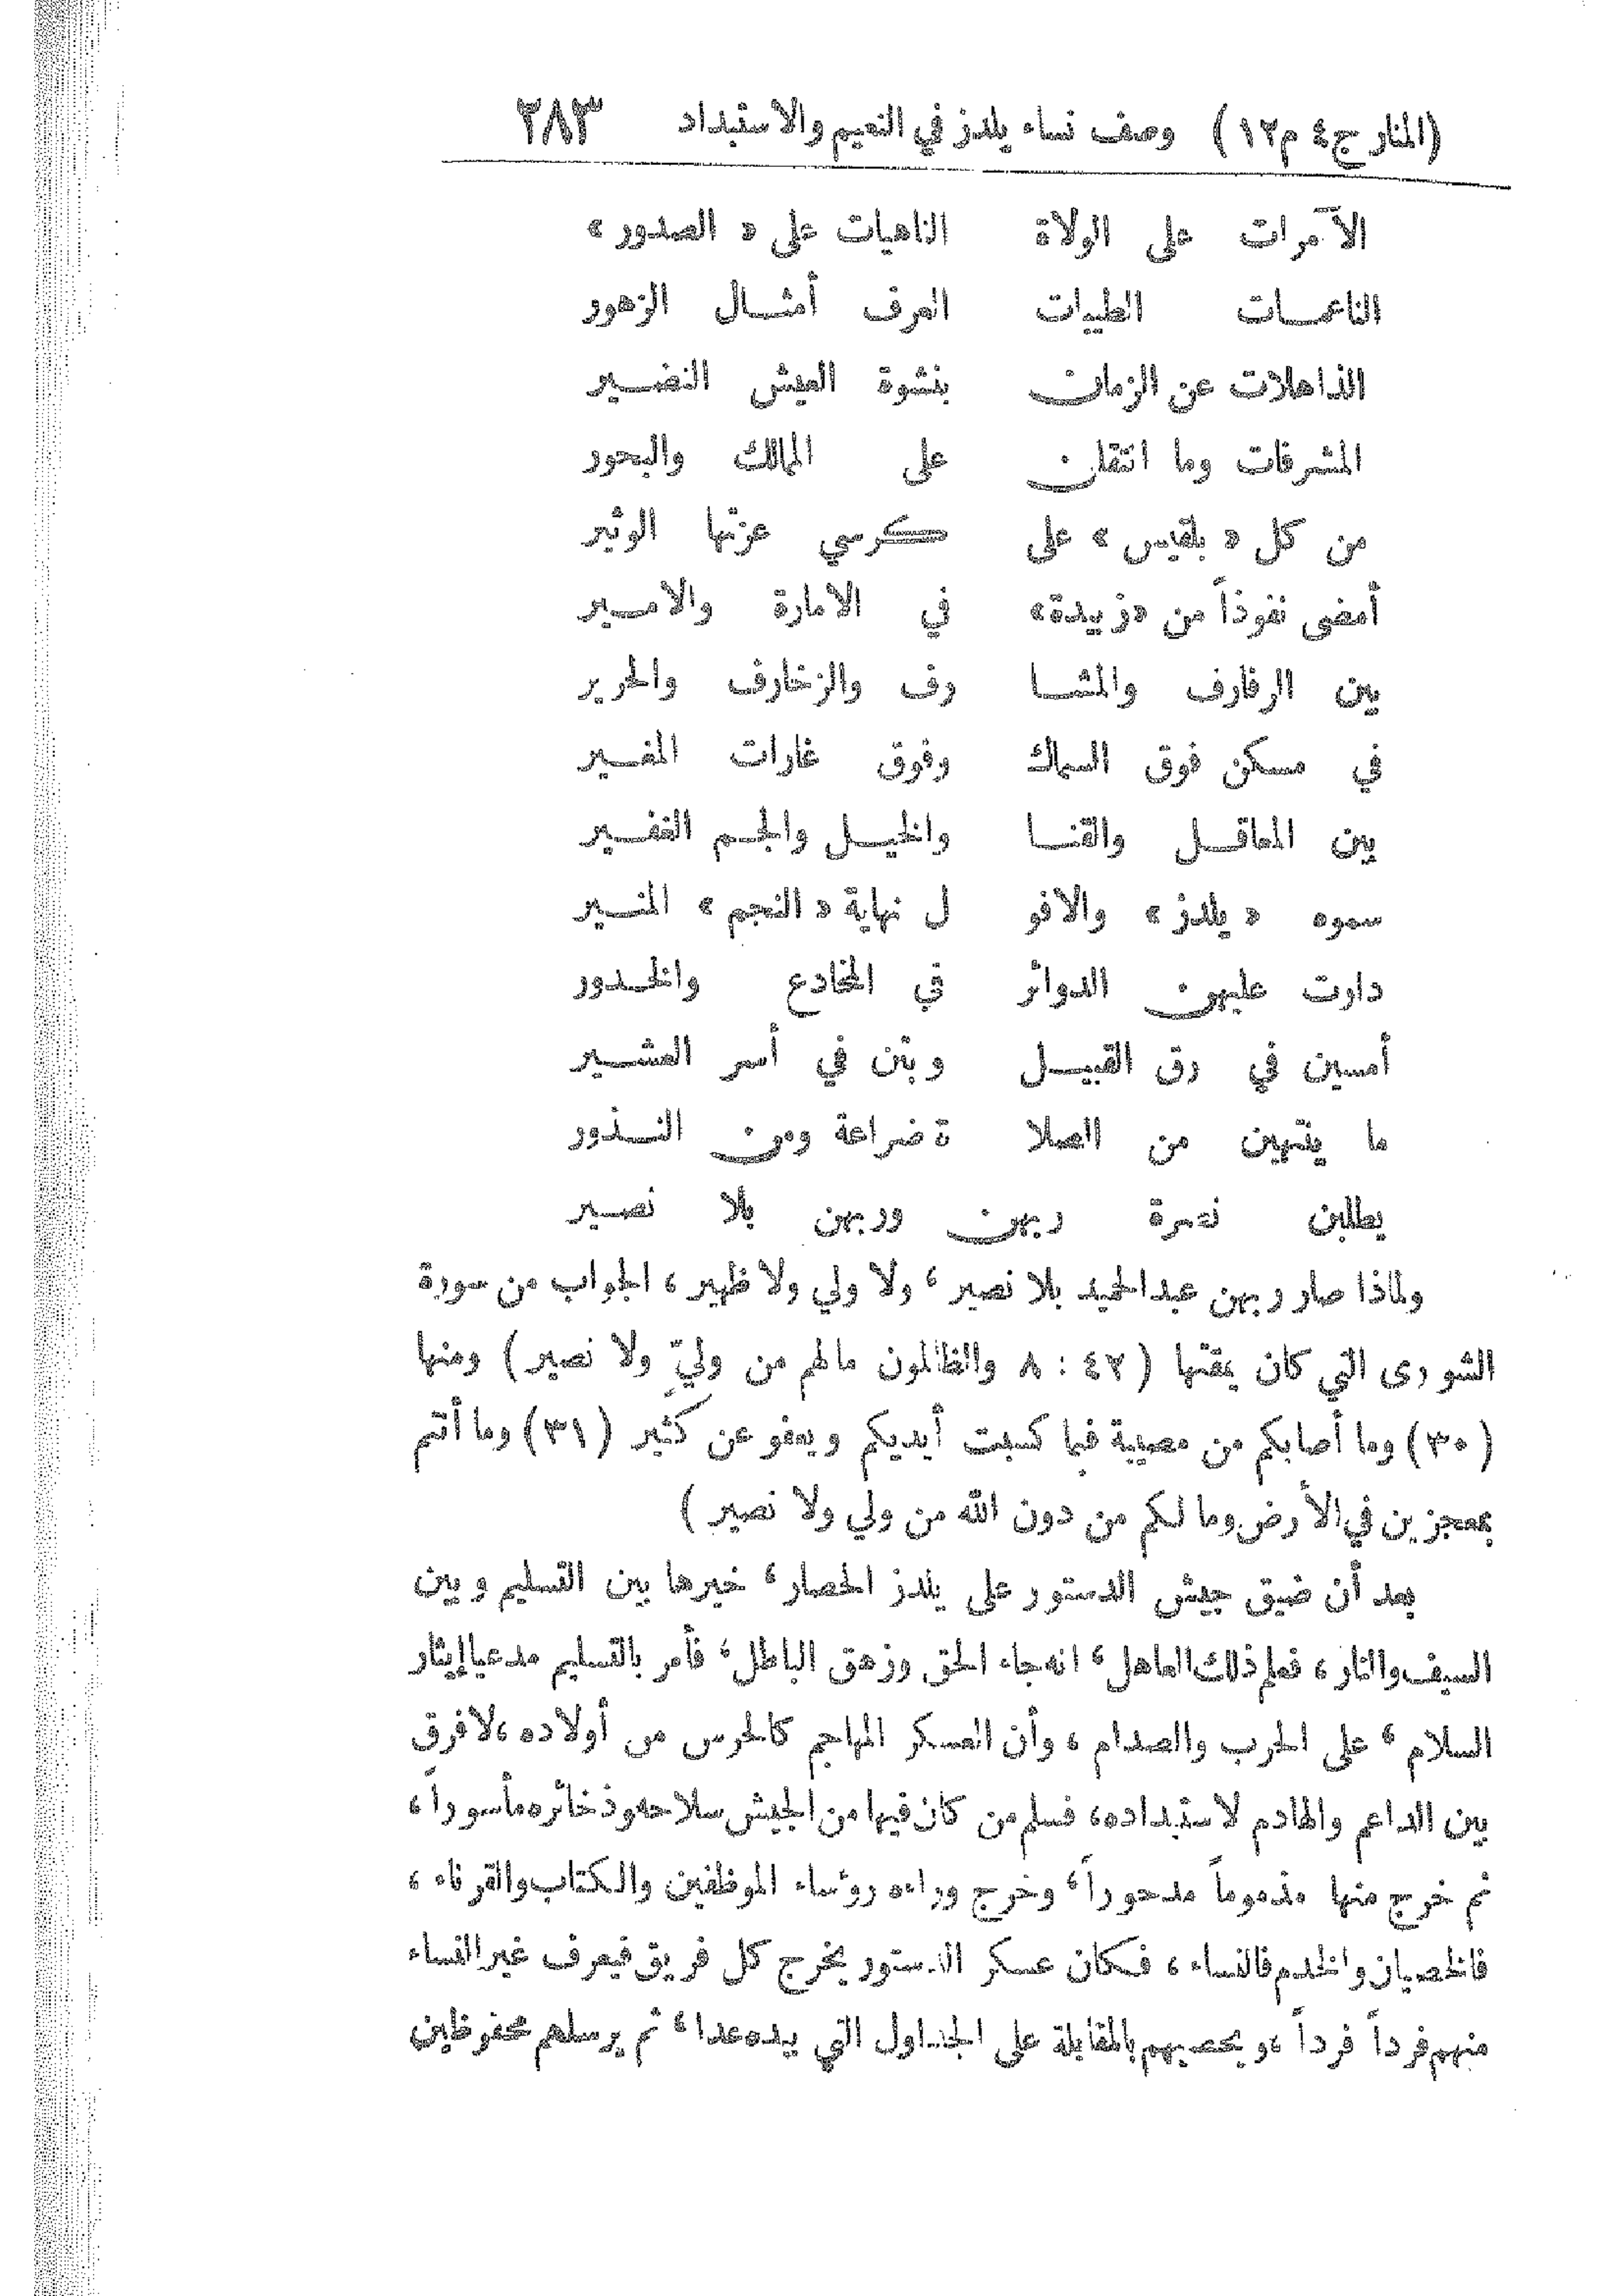 (المنار ج٤ م١٢) وصف نساء يلدز في النعيم والاستبداد ٢٨٣
الآمرات على الولاة الناهيات على « الصدور »
الناعمــات الطيبات العرف أمثــال الزهور
الذاهلات عن الزمان بنشوة العيش النضــير
المشرفات وما انتقلن على الممالك والبحور
من كل « بلقيس » على كرسي عزتها الوثير
أمضى نفوذاً من «زبيدة» في الامارة والامــير
بين الرفارف والمشــا رف والزخارف والحرير
في مسكن فوق السماك وفوق غارات المغــير
بين المعاقــل والقنــا والخيــل والجــم الغفــير
سموه « يلدز » والافو ل نهاية « النجم » المنــير
دارت عليهن الدوائر في المخادع والخــدور
أمسين في رق القبيــل وبتن في أسر العشــير
ما ينتهين من الصلا ة ضراعة ومن النــذور
يطلبن نصرة ربهن وربهن بلا نصــير
ولماذا صار ربهن عبد الحميد بلا نصير ، ولا ولي ولا ظهير ، الجواب من سورة
الشورى التي كان يمقتها ( ٤٢ : ٨ والظالمون مالهم من وليّ ولا نصير ) ومنها
(٣٠) وما أصابكم من مصيبة فبما كسبت أيديكم ويعفو عن كثير (٣١) وما أنتم
بمعجزين في الأرض وما لكم من دون الله من ولي ولا نصير )
بعد أن ضيق جيش الدستور على يلدز الحصار ، خيرها بين التسليم وبين
السيف والنار ، فعلم ذلك العاهل ، انه جاء الحق وزهق الباطل ، فأمر بالتسليم مدعيا إيثار
السلام ، على الحرب والصدام ، وأن العسكر المهاجم كالحرس من أولاده ، لا فرق
بين الداعم والهادم لاستبداده ، فسلم من كان فيها من الجيش سلاحه وذخائره مأسوراً ،
ثم خرج منها مذموماً مدحوراً ، وخرج وراءه رؤساء الموظفين والكتاب والقرناء ،
فالخصيان والخدم فالنساء ، فكان عسكر الدستور يخرج كل فريق فيعرف غير النساء
منهم فرداً فرداً ، ويحصيهم بالمقابلة على الجداول التي بيده عدا ، ثم يرسلهم محفوظين